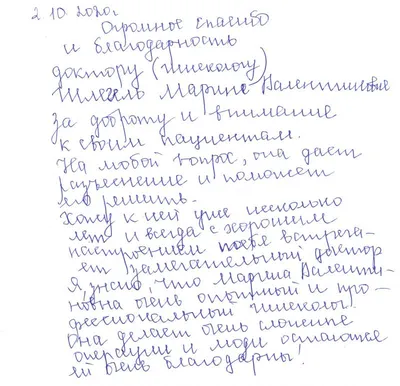 2.10.2020г
Огромное спасибо
и благодарность
доктору (гинекологу)
Шлегель Марине Валентиновне
за доброту и внимание
к своим пациентам.
На любой вопрос, она дает
разъяснение и поможет
его решить.
Хожу к ней уже несколько
лет и всегда с хорошим
настроением тебя встреча-
ет замечательный доктор
Я, знаю, что Марина Валенти-
новна очень опытный и про-
фессиональный гинеколог.
Она делает очень сложные
операции и люди остаются
ей очень благодарны!